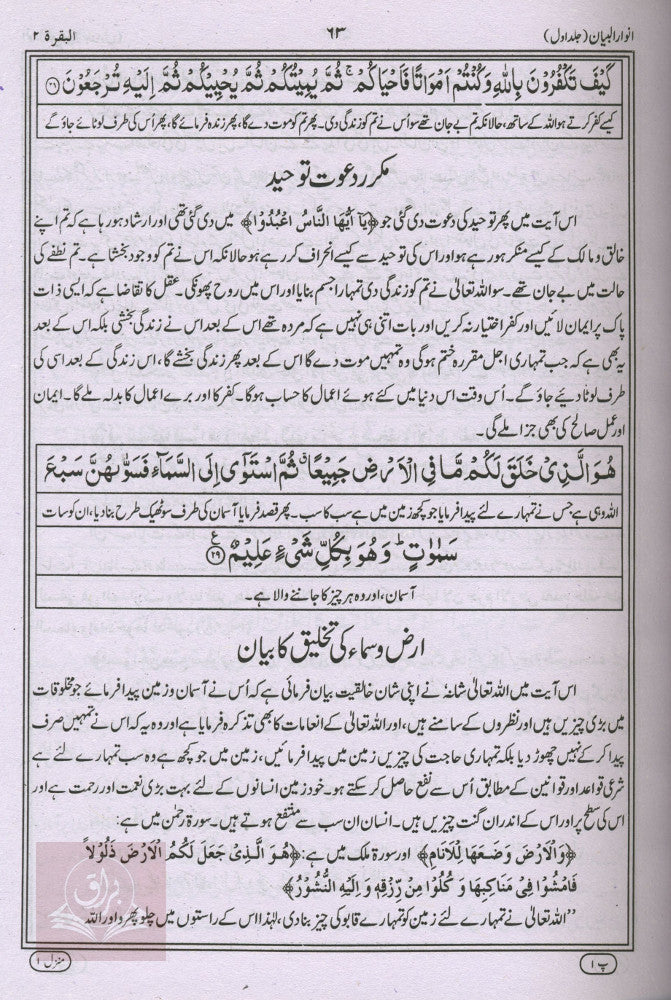 انوار البیان (جلد اول)
۶۳
البقرة ۲
كَيْفَ تَكْفُرُوْنَ بِاللّٰهِ وَكُنْتُمْ اَمْوَاتًا فَاَحْيَاكُمْ ۚ ثُمَّ يُمِيْتُكُمْ ثُمَّ يُحْيِيْكُمْ ثُمَّ اِلَيْهِ تُرْجَعُوْنَ ۲۸
کیسے کفر کرتے ہو اللہ کے ساتھ، حالانکہ تم بے جان تھے سو اُس نے تم کو زندگی دی۔ پھر تم کو موت دے گا، پھر زندہ فرمائے گا، پھر اُس کی طرف لوٹائے جاؤ گے
مکرر دعوت توحید
اس آیت میں پھر توحید کی دعوت دی گئی جو ﴿یٰٓا اَیُّهَا النَّاسُ اعْبُدُوْا﴾ میں دی گئی تھی اور ارشاد ہو رہا ہے کہ تم اپنے
خالق و مالک کے کیسے منکر ہو رہے ہو اور اس کی توحید سے کیسے انحراف کر رہے ہو حالانکہ اس نے تم کو وجود بخشا ہے۔ تم نطفے کی
حالت میں بے جان تھے۔ سو اللہ تعالیٰ نے تم کو زندگی دی تمہارا جسم بنایا اور اس میں روح پھونکی۔ عقل کا تقاضا ہے کہ ایسی ذات
پاک پر ایمان لائیں اور کفر اختیار نہ کریں اور بات اتنی ہی نہیں ہے کہ مردہ تھے اس کے بعد اس نے زندگی بخشی بلکہ اس کے بعد
یہ بھی ہے کہ جب تمہاری اجل مقررہ ختم ہوگی وہ تمہیں موت دے گا اس کے بعد پھر زندگی بخشے گا، اس زندگی کے بعد اسی کی
طرف لوٹا دیئے جاؤ گے۔ اُس وقت اس دنیا میں کئے ہوئے اعمال کا حساب ہوگا۔ کفر کا اور برے اعمال کا بدلہ ملے گا۔ ایمان
اور عمل صالح کی بھی جزا ملے گی۔
هُوَ الَّذِيْ خَلَقَ لَكُمْ مَّا فِي الْاَرْضِ جَمِيْعًا ۗ ثُمَّ اسْتَوٰٓى اِلَى السَّمَآءِ فَسَوّٰىهُنَّ سَبْعَ
اللہ وہی ہے جس نے تمہارے لئے پیدا فرمایا جو کچھ زمین میں ہے سب کا سب۔ پھر قصد فرمایا آسمان کی طرف سو ٹھیک طرح بنا دیا، ان کو سات
سَمٰوٰتٍ ؕ وَهُوَ بِكُلِّ شَيْءٍ عَلِيْمٌ ۲۹ ع
آسمان، اور وہ ہر چیز کا جاننے والا ہے۔
ارض و سماء کی تخلیق کا بیان
اس آیت میں اللہ تعالیٰ شانہٗ نے اپنی شان خالقیت بیان فرمائی ہے کہ اُس نے آسمان و زمین پیدا فرمائے جو مخلوقات
میں بڑی چیزیں ہیں اور نظروں کے سامنے ہیں، اور اللہ تعالیٰ کے انعامات کا بھی تذکرہ فرمایا ہے اور وہ یہ کہ اس نے تمہیں صرف
پیدا کر کے نہیں چھوڑ دیا بلکہ تمہاری حاجت کی چیزیں زمین میں پیدا فرمائیں، زمین میں جو کچھ ہے وہ سب تمہارے لئے ہے
شرعی قواعد اور قوانین کے مطابق اُس سے نفع حاصل کر سکتے ہو۔ خود زمین انسانوں کے لئے بہت بڑی نعمت اور رحمت ہے اور
اس کی سطح پر اور اس کے اندر ان گنت چیزیں ہیں۔ انسان ان سب سے منتفع ہوتے ہیں۔ سورۃ رحمٰن میں ہے:
﴿وَالْاَرْضَ وَضَعَهَا لِلْاَنَامِ﴾ اور سورۃ ملک میں ہے: ﴿هُوَ الَّذِيْ جَعَلَ لَكُمُ الْاَرْضَ ذَلُوْلاً
فَامْشُوْا فِيْ مَنَاكِبِهَا وَ كُلُوْا مِنْ رِّزْقِهٖ وَ اِلَيْهِ النُّشُوْرُ﴾
”اللہ تعالیٰ نے تمہارے لئے زمین کو تمہارے قابو کی چیز بنا دی، لہٰذا اس کے راستوں میں چلو پھرو اور اللہ
براق
پ ۱
منزل ۱